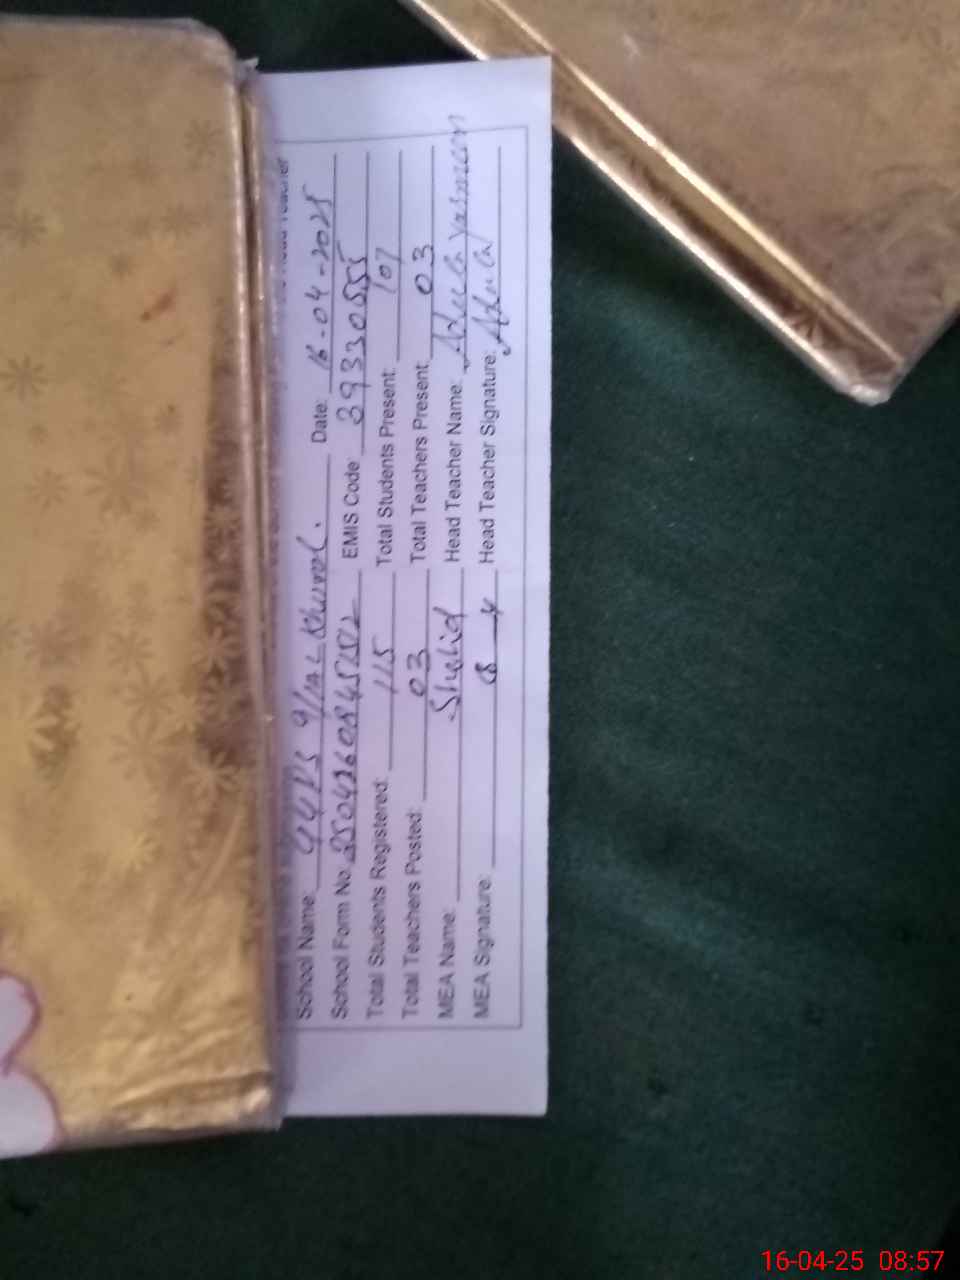 Head Teacher
School Name: GGPS 9/1AL Khurd. Date: 16-04-2025
School Form No: 2504260845202 EMIS Code: 39330555
Total Students Registered: 115 Total Students Present: 107
Total Teachers Posted: 03 Total Teachers Present: 03
MEA Name: Shahid Head Teacher Name: Adeela Yasmeen
MEA Signature: Head Teacher Signature: Adeela
16-04-25 08:57